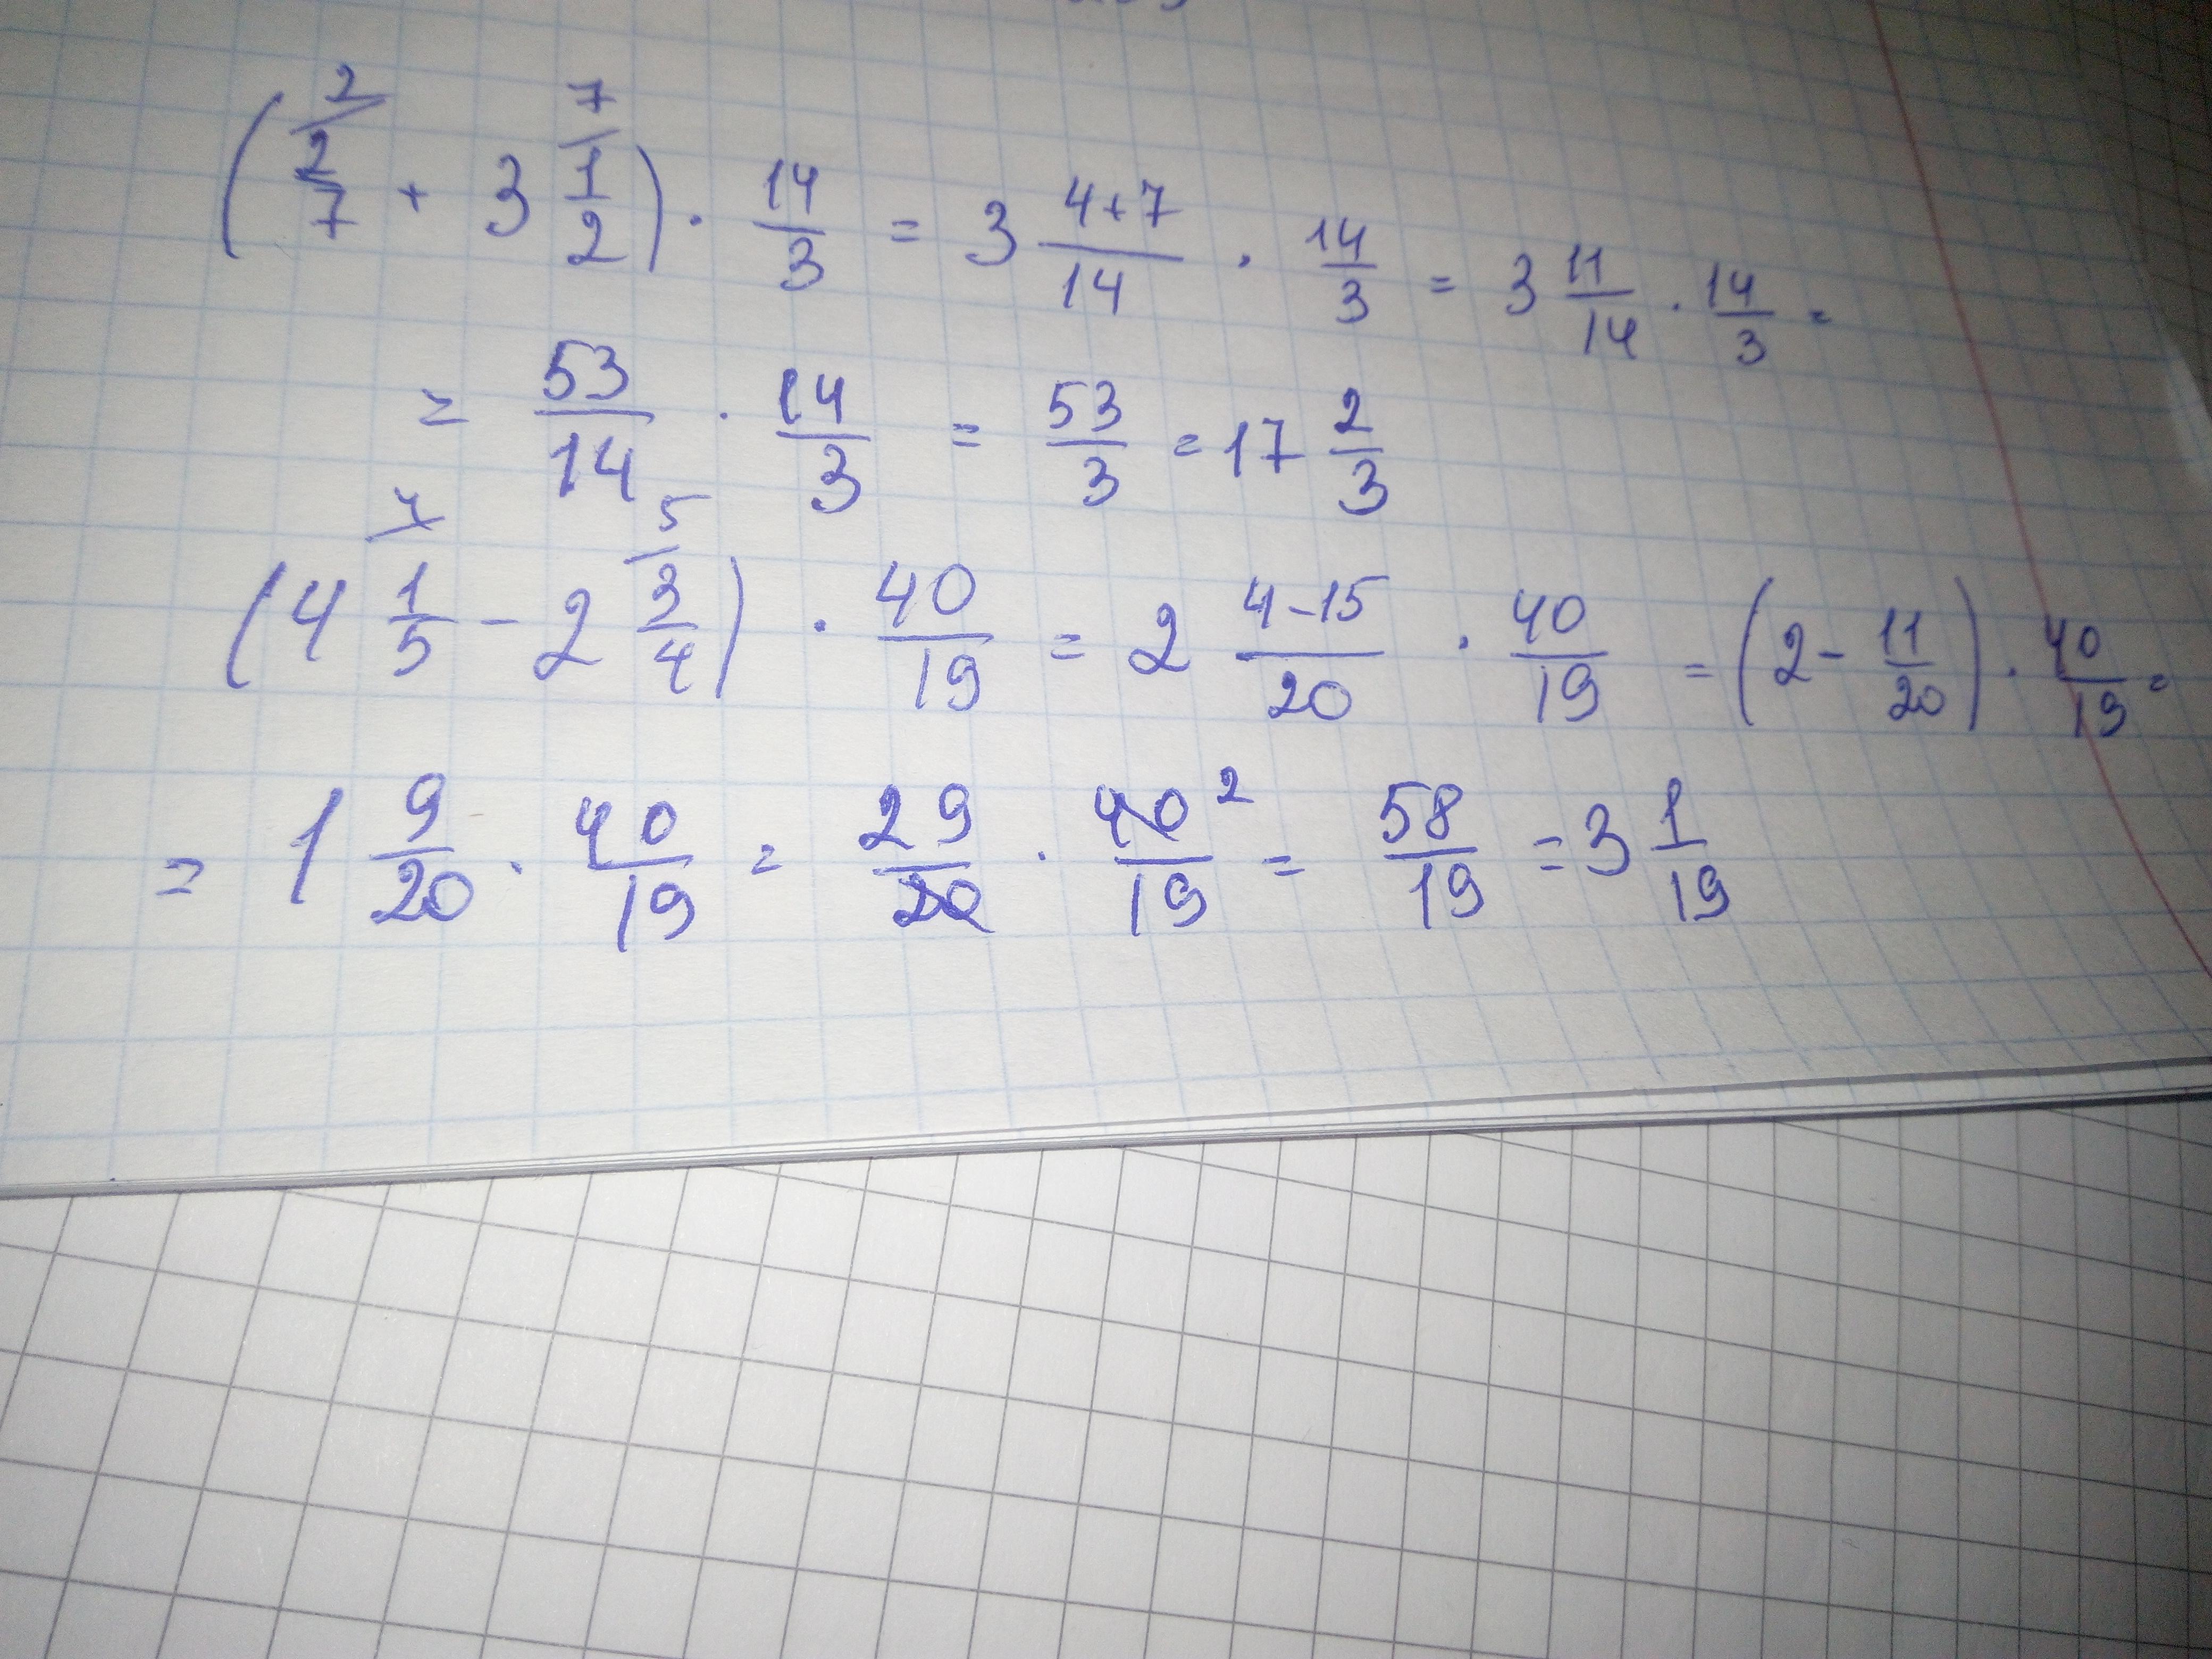 (2/7 + 3 1/2) · 14/3 = 3 4+7/14 · 14/3 = 3 11/14 · 14/3 =
= 53/14 · 14/3 = 53/3 = 17 2/3
(4 1/5 - 2 3/4) · 40/19 = 2 4-15/20 · 40/19 = (2 - 11/20) · 40/19 =
= 1 9/20 · 40/19 = 29/20 · 40/19 = 58/19 = 3 1/19